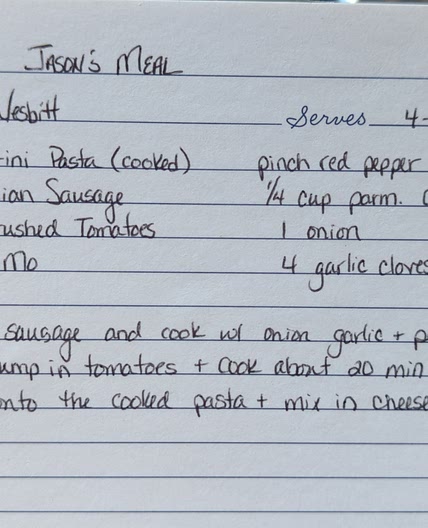 JASON'S MEAL
Nesbitt Serves 4-
ini Pasta (cooked) pinch red pepper
ian Sausage 1/4 cup parm.
ushed Tomatoes 1 onion
Mo 4 garlic cloves
sausage and cook w/ onion garlic + p
ump in tomatoes + cook about 20 min
nto the cooked pasta + mix in cheese